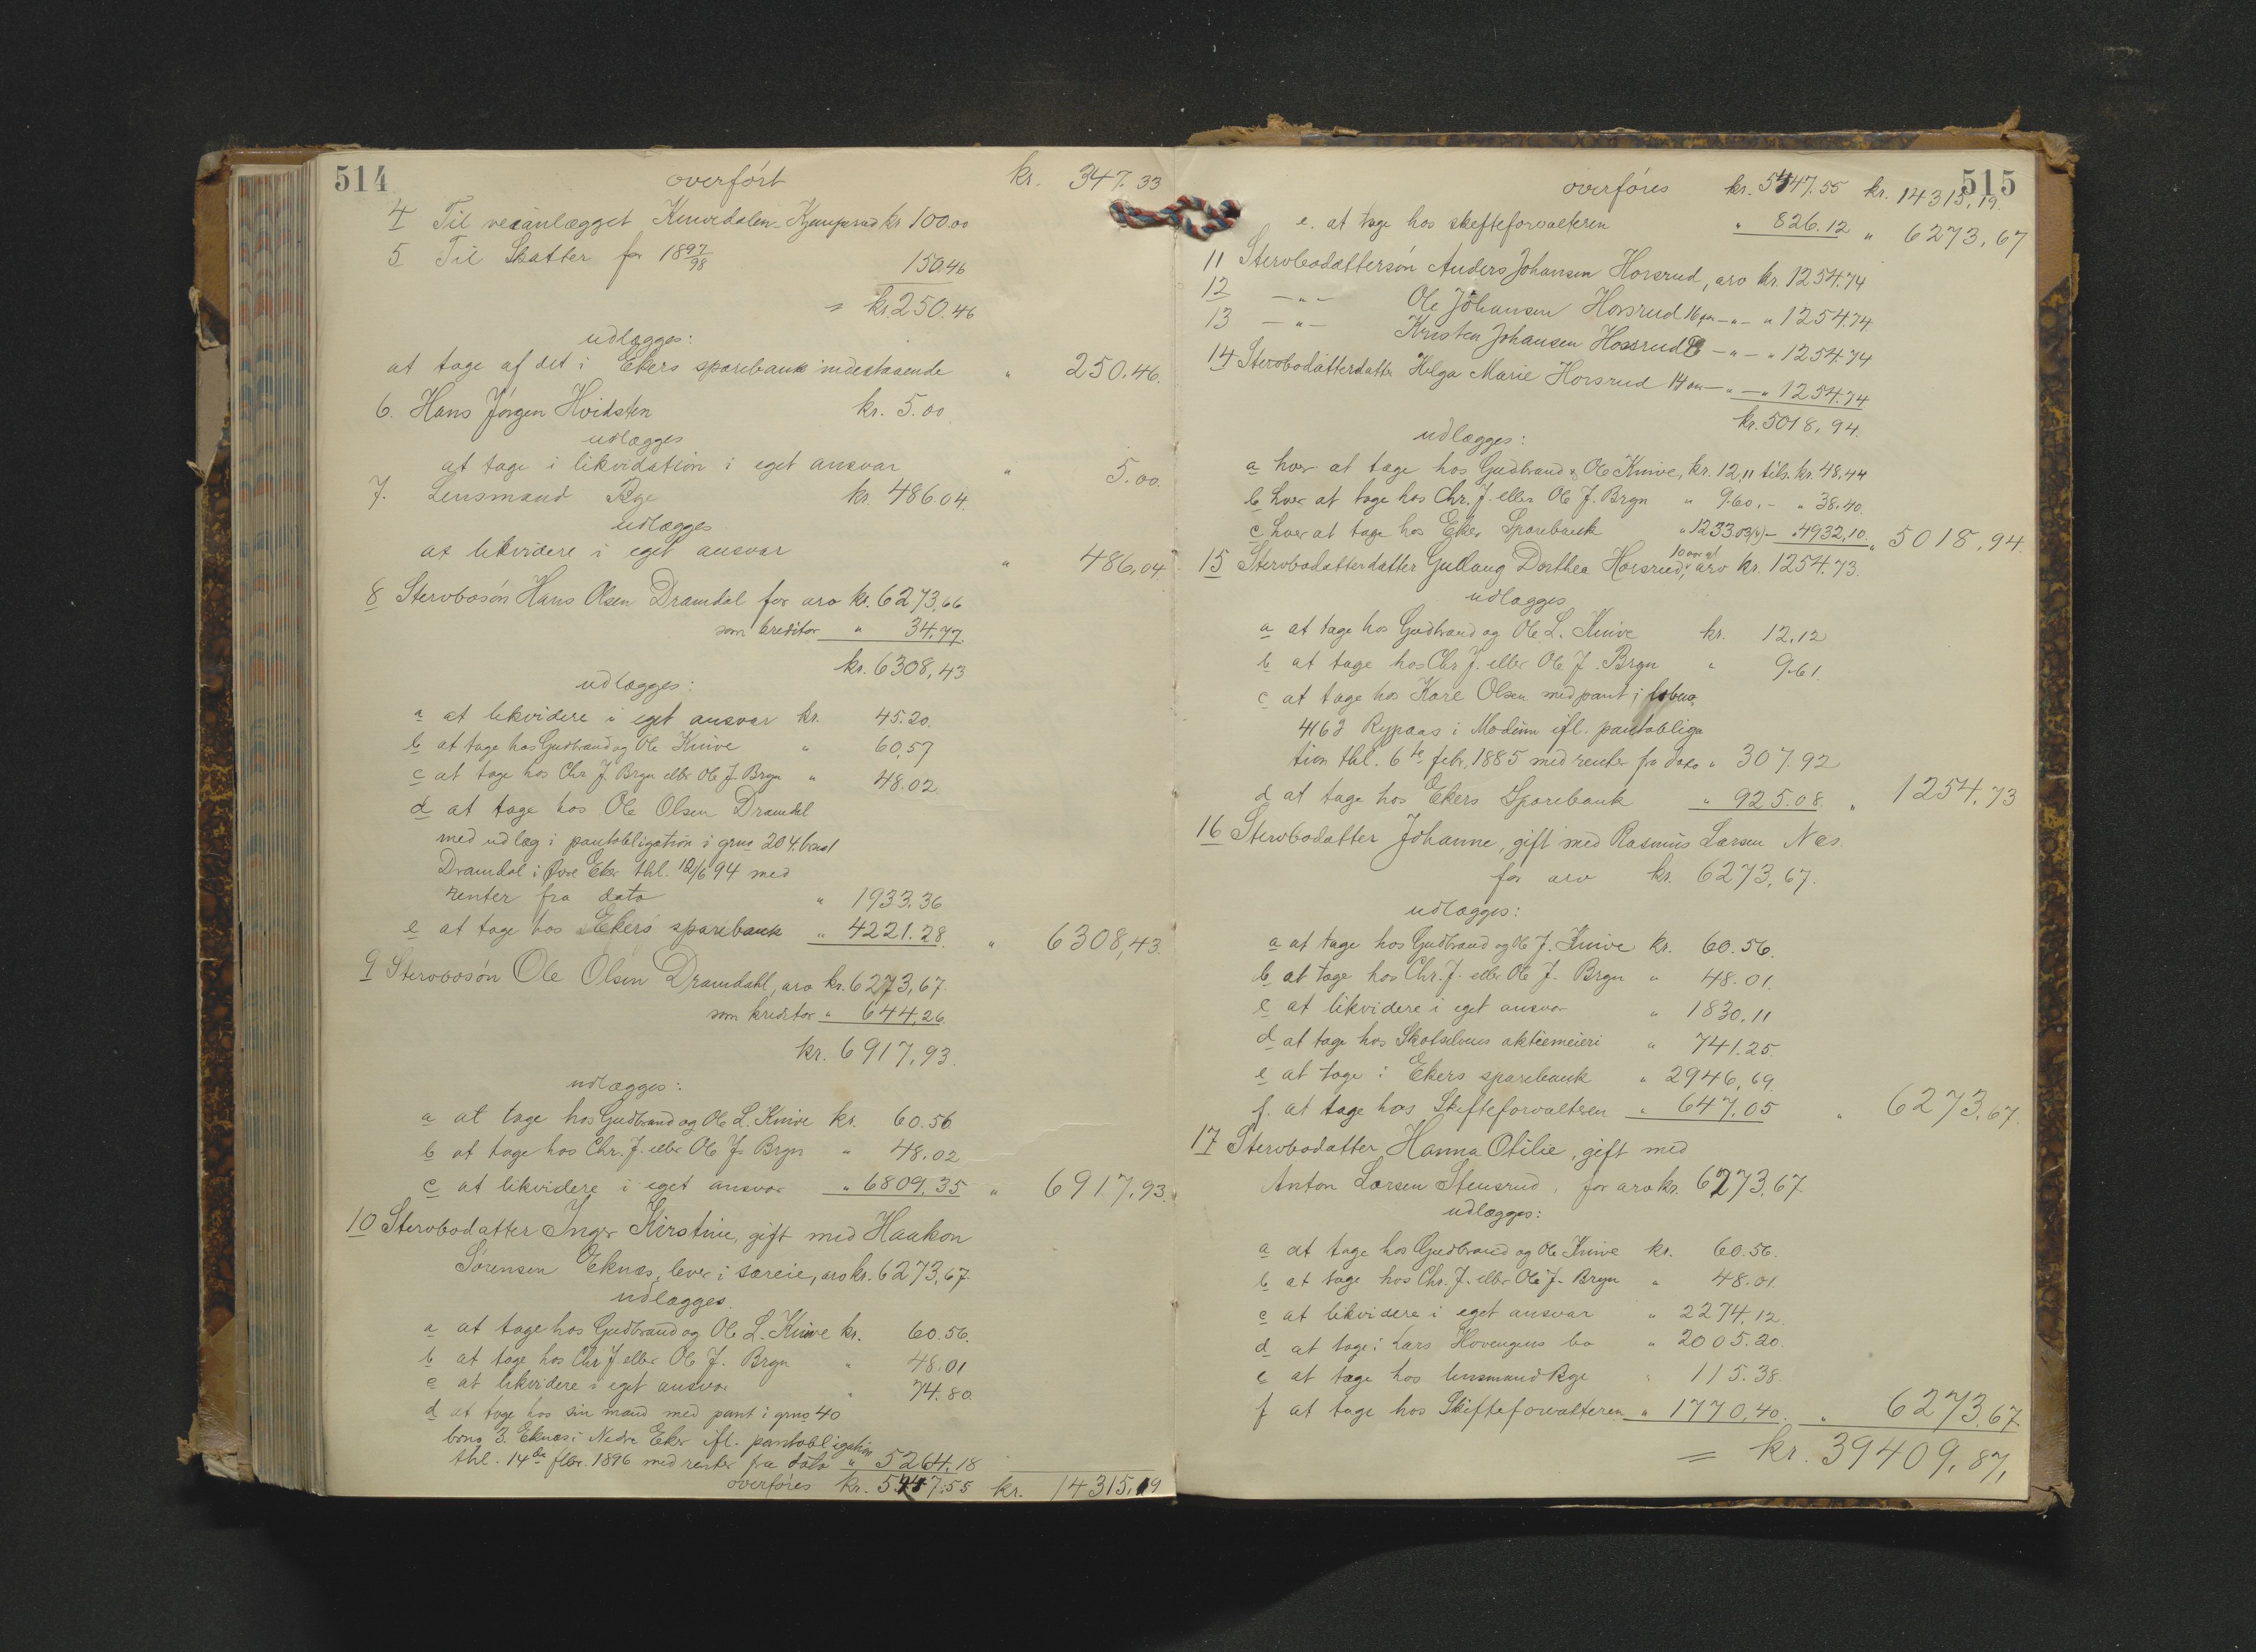 514
overført kr. 347.33
4 Til veianlægget Knivedalen-Kjemperud kr 100.00
5 Til Skatter for 1897/98 150.46
= kr. 250.46
udlægges:
at tage af det i Ekers sparebank indestaaende " 250.46.
6. Hans Jørgen Hvidsten kr. 5.00.
udlægges
at tage i likvidation i eget ansvar " 5.00.
7. Lensmand Rye kr. 486.04.
udlægges
at likvidere i eget ansvar " 486,04.
8 Stervbosøn Hans Olsen Dramdal for arv kr. 6273,66
som kreditor " 34.77.
kr. 6308,43
udlægges:
a at likvidere i eget ansvar kr. 45.20.
b at tage hos Gudbrand og Ole Knive " 60,57
c at tage hos Chr J. Bryn eller Ole J. Bryn " 48.02
d at tage hos Ole Olsen Dramdal
med udlæg i pantobligation i grno 204. bno 1
Dramdal i Øvre Eker thl. 12/6 94 med
renter fra dato " 1933.36
e at tage hos Ekers sparebank " 4221.28. " 6308,43.
9 Stervbosøn Ole Olsen Dramdahl, arv kr. 6273,67.
som kreditor " 644,26.
kr. 6917,93.
udlægges:
a at tage hos Gudbrand og Ole L. Knive kr. 60.56
b at tage hos Chr. J. eller Ole J. Bryn " 48.02
c at likvidere i eget ansvar " 6809.35 " 6917,93.
10 Stervbodatter Inger Kirstine, gift med Haakon
Sørensen Eknæs, lever i særeie, arv kr. 6273,67
udlægges.
a at tage hos Gudbrand og Ole L. Knive kr. 60.56.
b at tage hos Chr J. eller Ole J. Bryn " 48.01
c at likvidere i eget ansvar " 74.80.
d at tage hos sin mand med pant i grno 40
brno 3. Eknæs i Nedre Eker ifl. pantobligation
thl. 14de febr. 1896 med renter fra dato " 5264.18
overføres kr. 5447.55 kr. 14315,19
515
overføres kr. 5447.55 kr. 14315,19.
e. at tage hos skifteforvalteren " 826.12 " 6273,67
11 Stervbodattersøn Anders Johansen Horsrud, arv kr. 1254.74
12 —"— Ole Johansen Horsrud 16 aar —"— " 1254.74
13 —"— Kristen Johansen Horsrud —"— " 1254.74
14 Stervbodatterdatter Helga Marie Horsrud 14 aar —"— " 1254.74
kr. 5018,94.
udlægges:
a hver at tage hos Gudbrand & Ole Knive, kr. 12,11 tils. kr. 48,44
b hver at tage hos Chr. J. eller Ole J. Bryn " 9.60.- " 38.40.
c hver at tage hos Eker Sparebank " 1233.03 — " 4932,10. " 5018,94.
15 Stervbodatterdatter Gullaug Dorthea Horsrud, 10 aar gl. arv kr. 1254.73.
udlægges
a at tage hos Gudbrand og Ole L. Knive kr. 12.12
b at tage hos Chr J. eller Ole J. Bryn " 9.61.
c at tage hos Kare Olsen med pant i løbno.
Rypaas i Modum ifl. pantobliga
tion thl. 6te febr. 1885 med renter fra dato " 307.92
d at tage hos Ekers Sparebank " 925.08. " 1254,73
16 Stervbodatter Johanne, gift med Rasmus Larsen Næs.
for arv kr. 6273,67.
udlægges:
a at tage hos Gudbrand og Ole J. Knive kr. 60.56.
b at tage hos Chr. J. eller Ole J. Bryn " 48.01.
c at likvidere i eget ansvar " 1830,11
d at tage hos Skotselvens aktiemeieri " 741.25.
e at tage i Ekers sparebank " 2946,69.
f. at tage hos Skifteforvalteren " 647,05 " 6273.67.
17 Stervbodatter Hanna Otilie, gift med
Anton Larsen Stensrud, for arv kr. 6273,67.
udlægges:
a at tage hos Gudbrand og Ole Knive kr. 60.56.
b at tage hos Chr. J. eller Ole J. Bryn " 48.01.
c at likvidere i eget ansvar " 2274,12.
d at tage i Lars Hovengens bo " 2005.20.
e at tage hos lensmand Rye " 115.38.
f at tage hos Skifteforvalteren " 1770,40. " 6273.67
= kr. 39409,87,